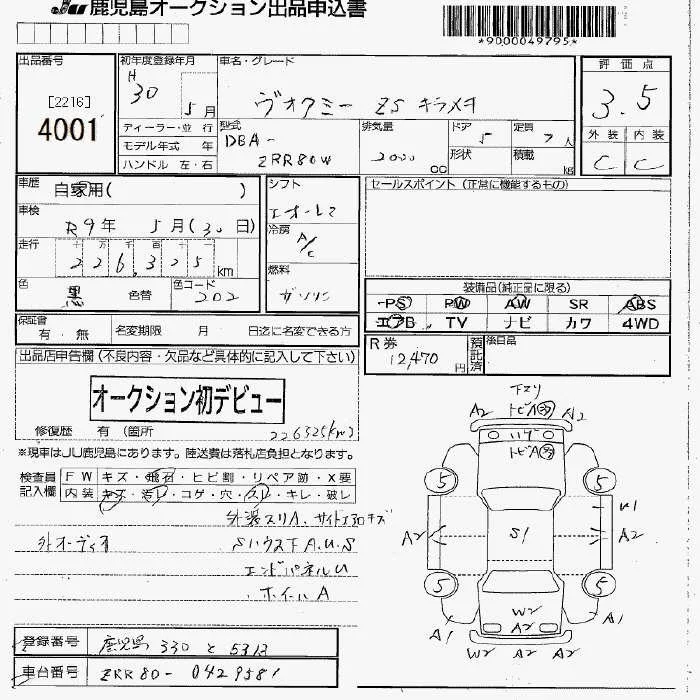 JU 鹿児島オークション出品申込書
*9D00049795*
出品番号 初年度登録年月 車名・グレード 評価点
[2216]
4001
H 30 5月
ヴォクシー ZS キラメキ
3.5
ディーラー・並行
モデル年式 年
ハンドル 左・右
型式 DBA-
ZRR80W
排気量 2000 cc
ドア 5
形状
定員 7人
積載 kg
外装 内装
C C
車歴 自家用( )
車検 R9年 5月(30日)
走行 十万千百十
226,325 km
色 黒 色替 色コード 202
シフト
冷房 A/C
燃料 ガソリン
セールスポイント (正常に機能するもの)
装備品(純正品に限る)
PS PW AW SR ABS
エアB TV ナビ カワ 4WD
保証書 有・無 名変期限 月 日迄に名変できる方
R券 12,470円 預託済 後日品
出品店申告欄(不良内容・欠品など具体的に記入して下さい)
オークション初デビュー
修復歴 有(箇所 226325km)
※現車はJU鹿児島にあります。陸送費は落札店負担となります。
検査員記入欄
FW キズ・飛石・ヒビ割・リペア跡・X要
内装・キズ・汚レ・コゲ・穴・スレ・キレ・破レ
外装スリA、サイドエアロキズ
外オーディオ SハウスFA.U.S
エンドパネルU
ホイールA
下スリ
A2 トビA A2
ハゲ
トビA
5 5
U1
A2 S1 A2
5 5
W2
A1 A2 A1
W2 A2 A2
登録番号 鹿児島 330 と 5313
車台番号 ZRR80-0429581